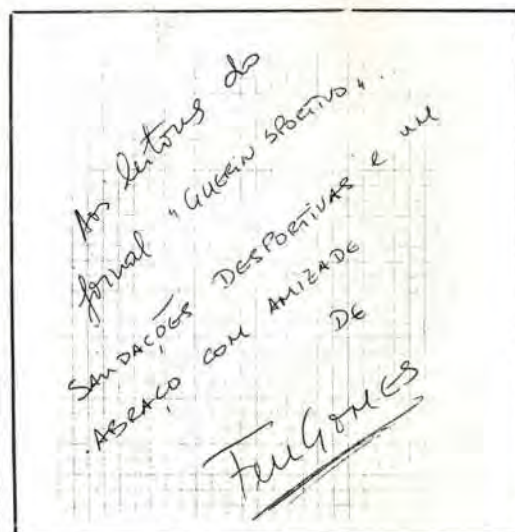 Aos leitores do
jornal "GUERIN SPORTIVO"..
SAUDAÇÕES DESPORTIVAS e um
ABRAÇO COM AMIZADE
DE
FernGomes